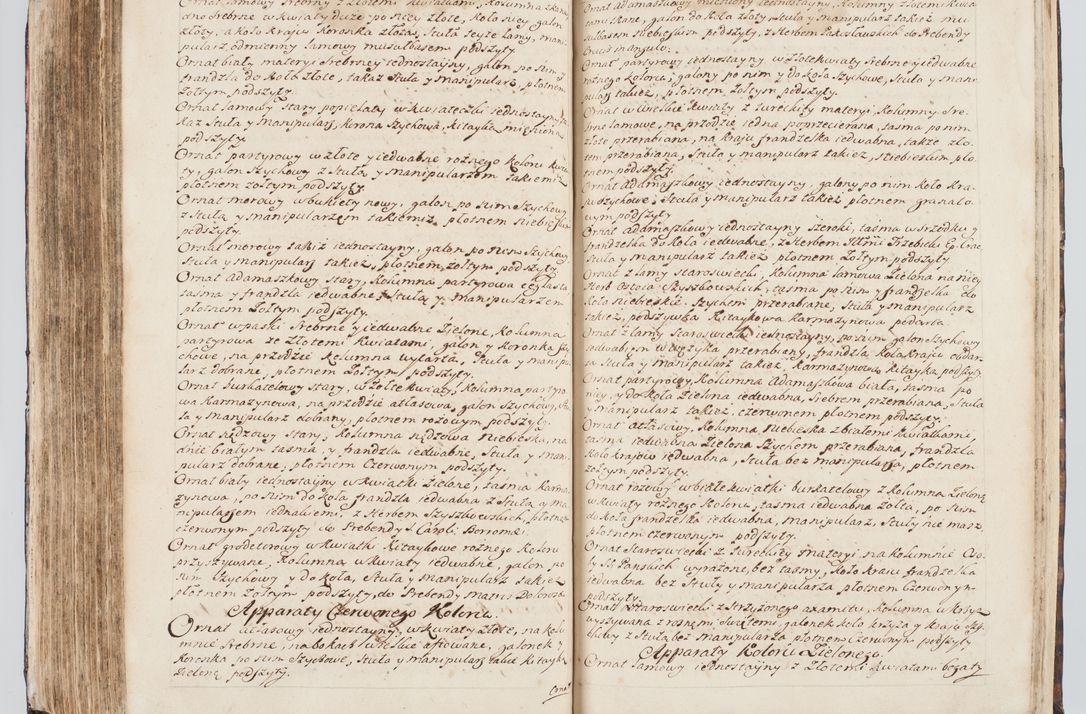 złoty, a koło kraju Koronka złota, Stuła teyże lamy, mani-
pularz odmienny lamowy musułbasem podszyty.
Ornat biały materyi srebrney iednostayny, galon po nim y
frandzla do koła złote, takaż Stuła y manipularz, płotnem
żołtym podszyty.
Ornat lamowy stary popielaty w kwiateczki iednostayny, ta
każ Stuła y manipularz, Korona Szychowa, Kitayką
podszyty.
Ornat partyrowy w złote y iedwabne rożnego koloru kwia
ty, galon Szychowy z Stułą y manipularzem takiemiż
płotnem żołtym podszyty.
Ornat morowy w bukiety nowy, galon po nim Szychowy
z Stułą y manipularzem takiemiż płotnem niebieskim
podszyty.
Ornat morowy takiż iednostayny, galon po nim Szychowy
Stuła y manipularz takież, płotnem żołtym podszyty.
Ornat adamaszkowy stary, Kolumna partyrowa ceglasta
tasma y frandzla iedwabne, z Stułą y manipularzem
płotnem żołtym podszyty.
Ornat w paski srebrne y iedwabne zielone, Kolumna
partyrowa ze złotemi kwiatami, galon y koronka Szy
chowe, na przodzie kolumna wytarta, Stuła y manipu
larz dobrane, płotnem żołtym podszyty.
Ornat burkatelowy stary, w żołte kwiaty, Kolumna partyro
wa karmazynowa, na przodzie atłasowa, galon Szychowy, Stu
ła y manipularz dobrany, płotnem rożowym podszyty.
Ornat rzędzowy stary, Kolumna rzędzowa niebieska, na
dnie białym tasma, y frandzla iedwabne, Stuła y mani
pularz dobrane, płotnem czerwonym podszyty.
Ornat biały iednostayny w kwiatki zielone, tasma karma
zynowa, po nim do koła frandzla iedwabna z Stułą y ma
nipularzem iednakiemi, z Herbem Szyszkowskich, płotnem
czerwonym podszyty do Prebendy S. Caroli Borromei.
Ornat grodeturowy w kwiatki kitaykowe rożnego koloru
przyszywane, Kolumna w kwiaty iedwabne, galon po
nim Szychowy y do koła, Stuła y manipularz takież
płotnem żołtym podszyty, do Prebendy Matris Dolorosa
Apparaty Czerwonego Koloru
Ornat atłasowy iednostayny, w kwiaty złote, na kolu
mnie srebrne, na bokach wielkie aftowane, galonek y
koronka po nim Szychowe, Stuła y manipularz takież kitayką
zieloną podszyty.
Ornat
galon do koła złoty Stuła y manipularz takież mu
sułbasem niebieskim podszyty, z Herbem do Prebendy
Ornat partyrowy iednostayny w złote kwiaty srebrne y iedwabne
rożnego koloru, galony po nim y do koła Szychowe, Stuła y mani
pularz takież, płotnem żołtym podszyty.
Ornat w wielkie kwiaty z tureckiey materyi, Kolumny sre
brne lamowe, na przodzie iedna poprzecierana, tasma po nim
złote przerabiana, na kraju frandzelka iedwabna, także zło
tem przerabiana, Stuła y manipularz takież, niebieskim pło
tnem podszyty.
Ornat adamaszkowy iednostayny, galony po nim koło kra
ju Szychowe, Stuła y manipularz takież płotnem granato
wym podszyty
Ornat adamaszkowy iednostayny szeroki, tasma w srzodku y
frandzelka do koła iedwabne, z Herbem Illmi Trzebicki Ep. Crac.
Stuła y manipularz takież płotnem żołtym podszyty
Ornat z lamy staroswiecki, Kolumna lamowa zielona na niey
Herb Ostoia Szyszkowskich, tasma po nim y frandzelka do
koła niebieskie Szychem przerabiane, Stuła y manipularz
takież, podszywka kitaykowa karmazynowa podarta.
Ornat z lamy staroswiecki iednostayny, po nim galon Szychowy
iedwabiem w wężyka przerabiany, frandzla koło kraju obdar
ta Stuła y manipularz takież, karmazynową kitayką podszyty
Ornat partyrowy, Kolumna adamaszkowa biała, tasma po
niey y do koła zielona iedwabna, srebrem przerabiana, Stuła
y manipularz takież czerwonem płotnem podszyty.
Ornat atłasowy, Kolumna niebieska z białemi kwiatkami,
tasma iedwabna zielona Szychem przerabiana, frandzla
koło kraiow iedwabna, Stuła bez manipularza, płotnem
żołtym podszyty.
Ornat rożowy w białe kwiatki burkatelowy z kolumną zieloną
w kwiaty rożnego koloru, tasma iedwabna żołta, po nim
do koła frandzelka iedwabna, manipularz, Stuły nie masz
płotnem czerwonym podszyty.
Ornat staroswiecki z tureckiey materyi, na kolumnie Oso
by SS. Pańskich wyrażone, bez tasmy, koło kraju frandzelka
iedwabna bez Stuły y manipularza płotnem czerwonym
podszyty.
Ornat staroswiecki z strzyżonego axamitu, Kolumna w krzyż
wyszywana z rożnemi Swiętemi, galonek koło krzyża y kraju Szy
chowy z Stułą bez manipularza płotnem czerwonym podszyty
Apparaty Koloru Zielonego.
Ornat lamowy iednostayny z złotemi kwiatami bogaty